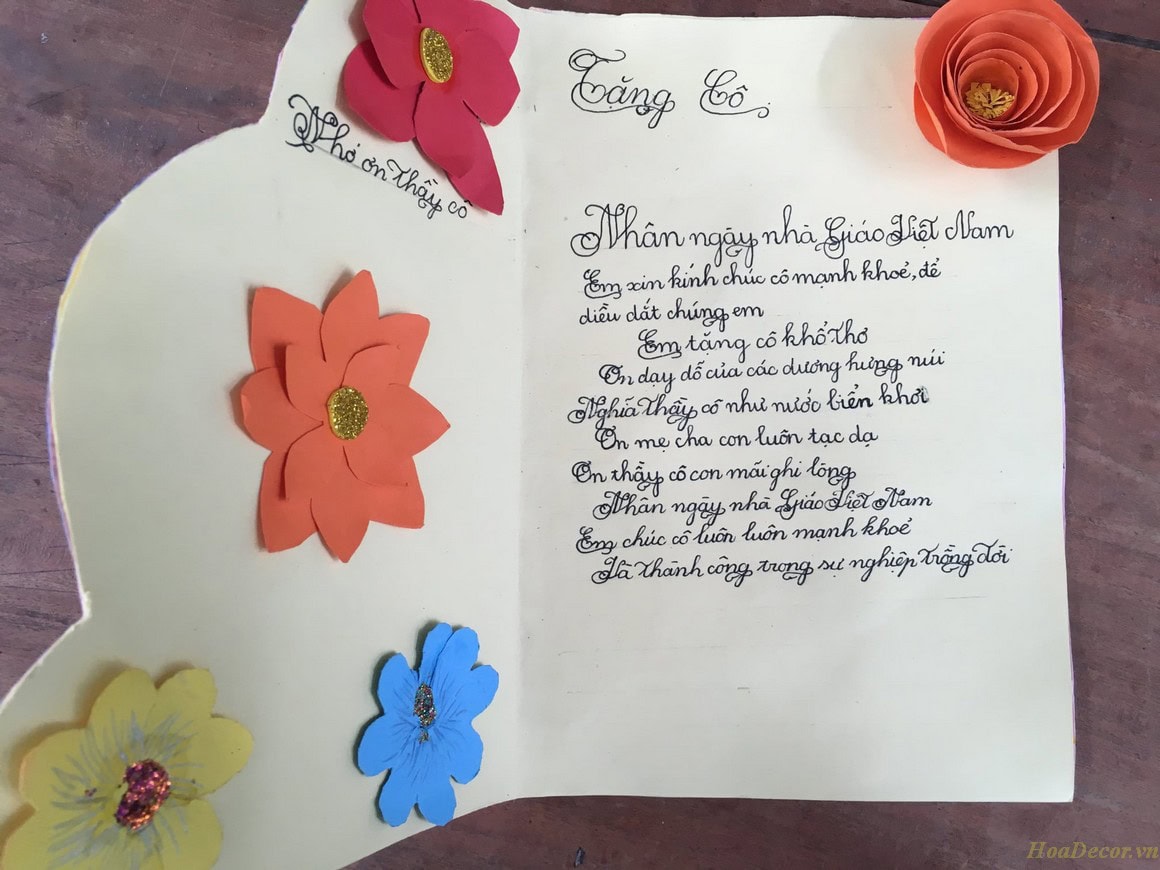 Nhớ ơn thầy cô
Tặng Cô
Nhân ngày nhà Giáo Việt Nam
Em xin kính chúc cô mạnh khoẻ, để
diều dắt chúng em
Em tặng cô khổ thơ
Ơn dạy dỗ của các dương hưng núi
Nghĩa thầy cô như nước biển khơi
Ơn mẹ cha con luôn tạc dạ
Ơn thầy cô con mãi ghi lòng
Nhân ngày nhà Giáo Việt Nam
Em chúc cô luôn luôn mạnh khoẻ
Và thành công trong sự nghiệp trồng đời
HoaDecor.vn